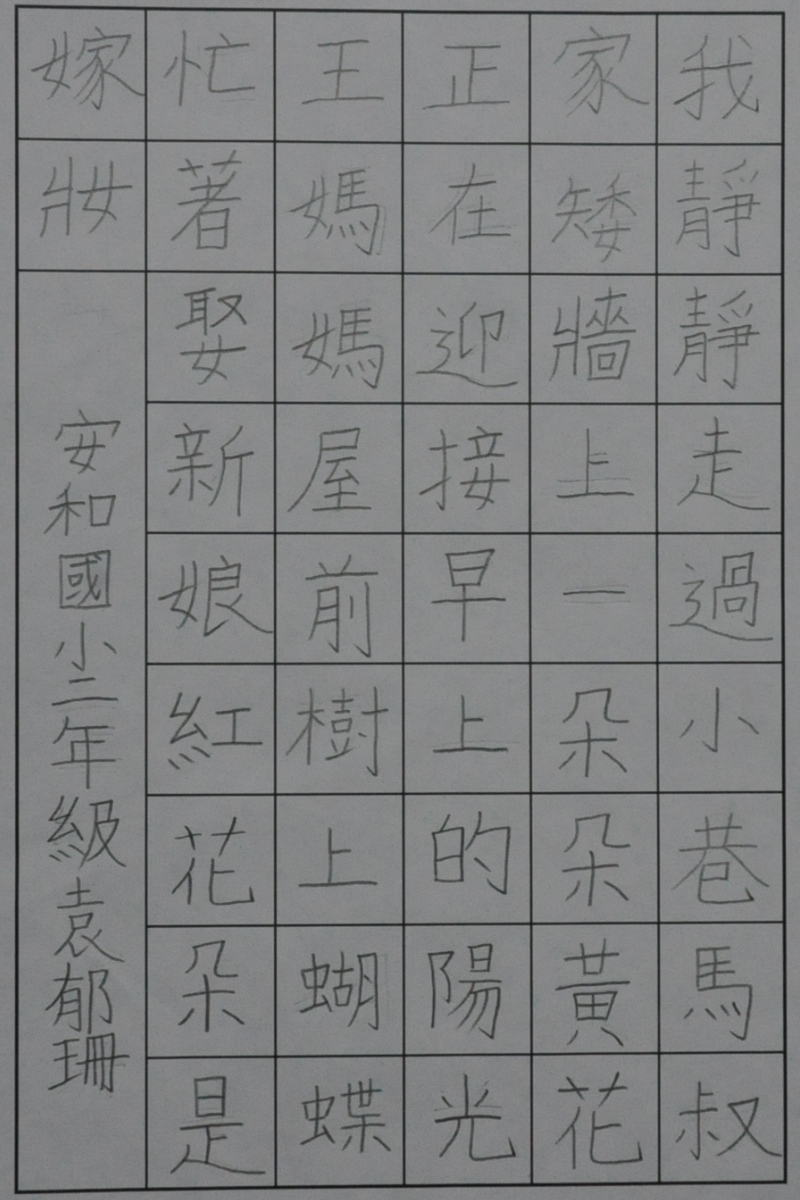 我靜靜走過小巷馬叔
家矮牆上一朵朵黃花
正在迎接早上的陽光
王媽媽屋前樹上蝴蝶
忙著娶新娘紅花朵是
嫁妝
安和國小二年級袁郁珊